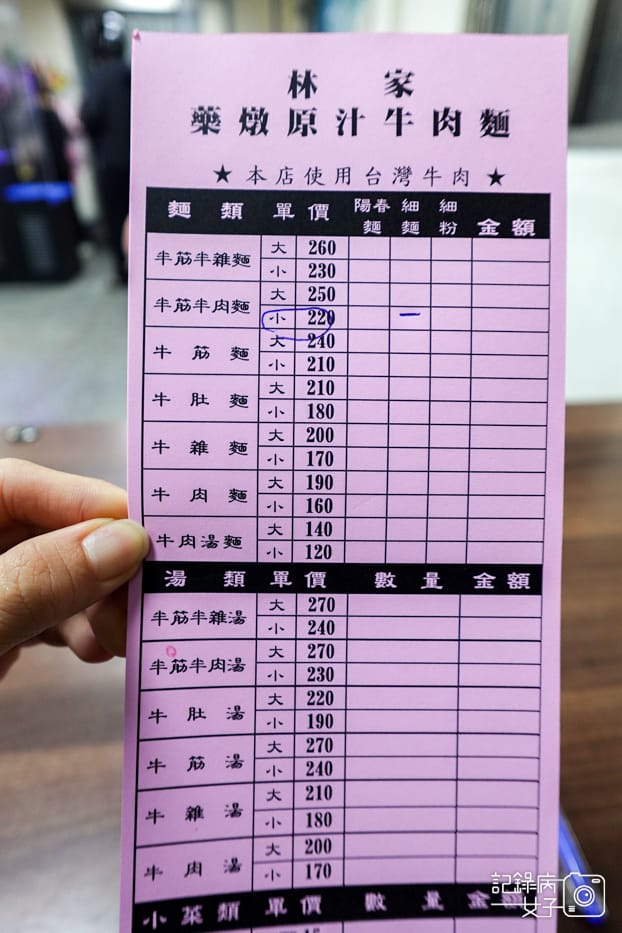 林家
藥燉原汁牛肉麵
★本店使用台灣牛肉★
麵類 單價 陽春麵 細麵 細粉 金額
半筋半雜麵 大 260
小 230
半筋半肉麵 大 250
小 220 一
牛筋麵 大 240
小 210
牛肚麵 大 210
小 180
牛雜麵 大 200
小 170
牛肉麵 大 190
小 160
牛肉湯麵 大 140
小 120
湯類 單價 數量 金額
半筋半雜湯 大 270
小 240
半筋半肉湯 大 270
小 230
牛肚湯 大 220
小 190
牛筋湯 大 270
小 240
牛雜湯 大 210
小 180
牛肉湯 大 200
小 170
小菜類 單價 數量 金額
記錄病
女子